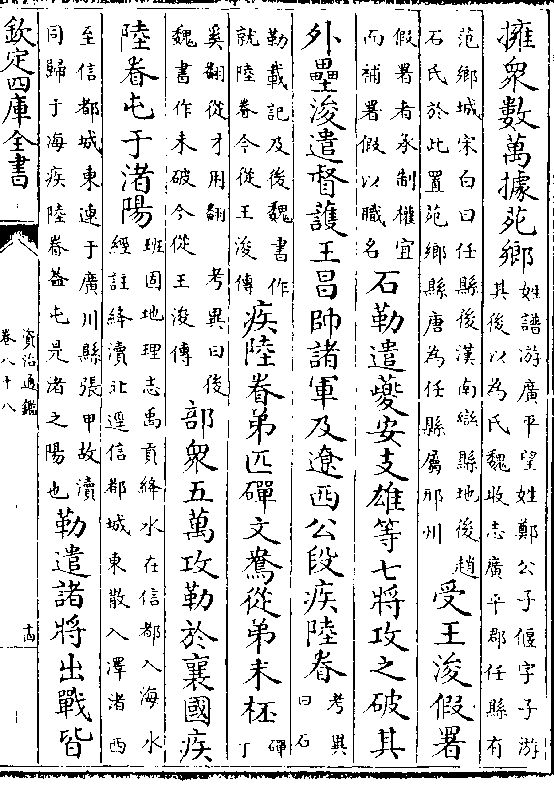 擁衆數萬據苑鄉姓譜游廣平望姓鄭公子偃字子游其後以為氏魏收志廣平郡任縣有
范鄉城宋白曰任縣後漢南䜌縣地後趙石氏於此置苑鄉縣唐為任縣屬邢州受王浚假署
假署者承制權宜而補署假以職名石勒遣夔安支雄等七將攻之破其
外壘浚遣督護王昌帥諸軍及遼西公段疾陸眷考異曰石
勒載記及後魏書作就陸眷今從王浚傳疾陸眷弟匹磾文鴦從弟末柸磾丁
奚翻從才用翻 考異曰後魏書作末破今從王浚傳部衆五萬攻勒於襄國疾
陸眷屯于渚陽班固地理志禹貢絳水在信都入海水經註絳瀆北逕信都城東散入澤渚西
至信都城東連于廣川縣張甲故瀆同歸于海疾陸眷葢屯是渚之陽也勒遣諸將出戰皆
欽定四庫全書
資治通鑑
卷八十八
十四